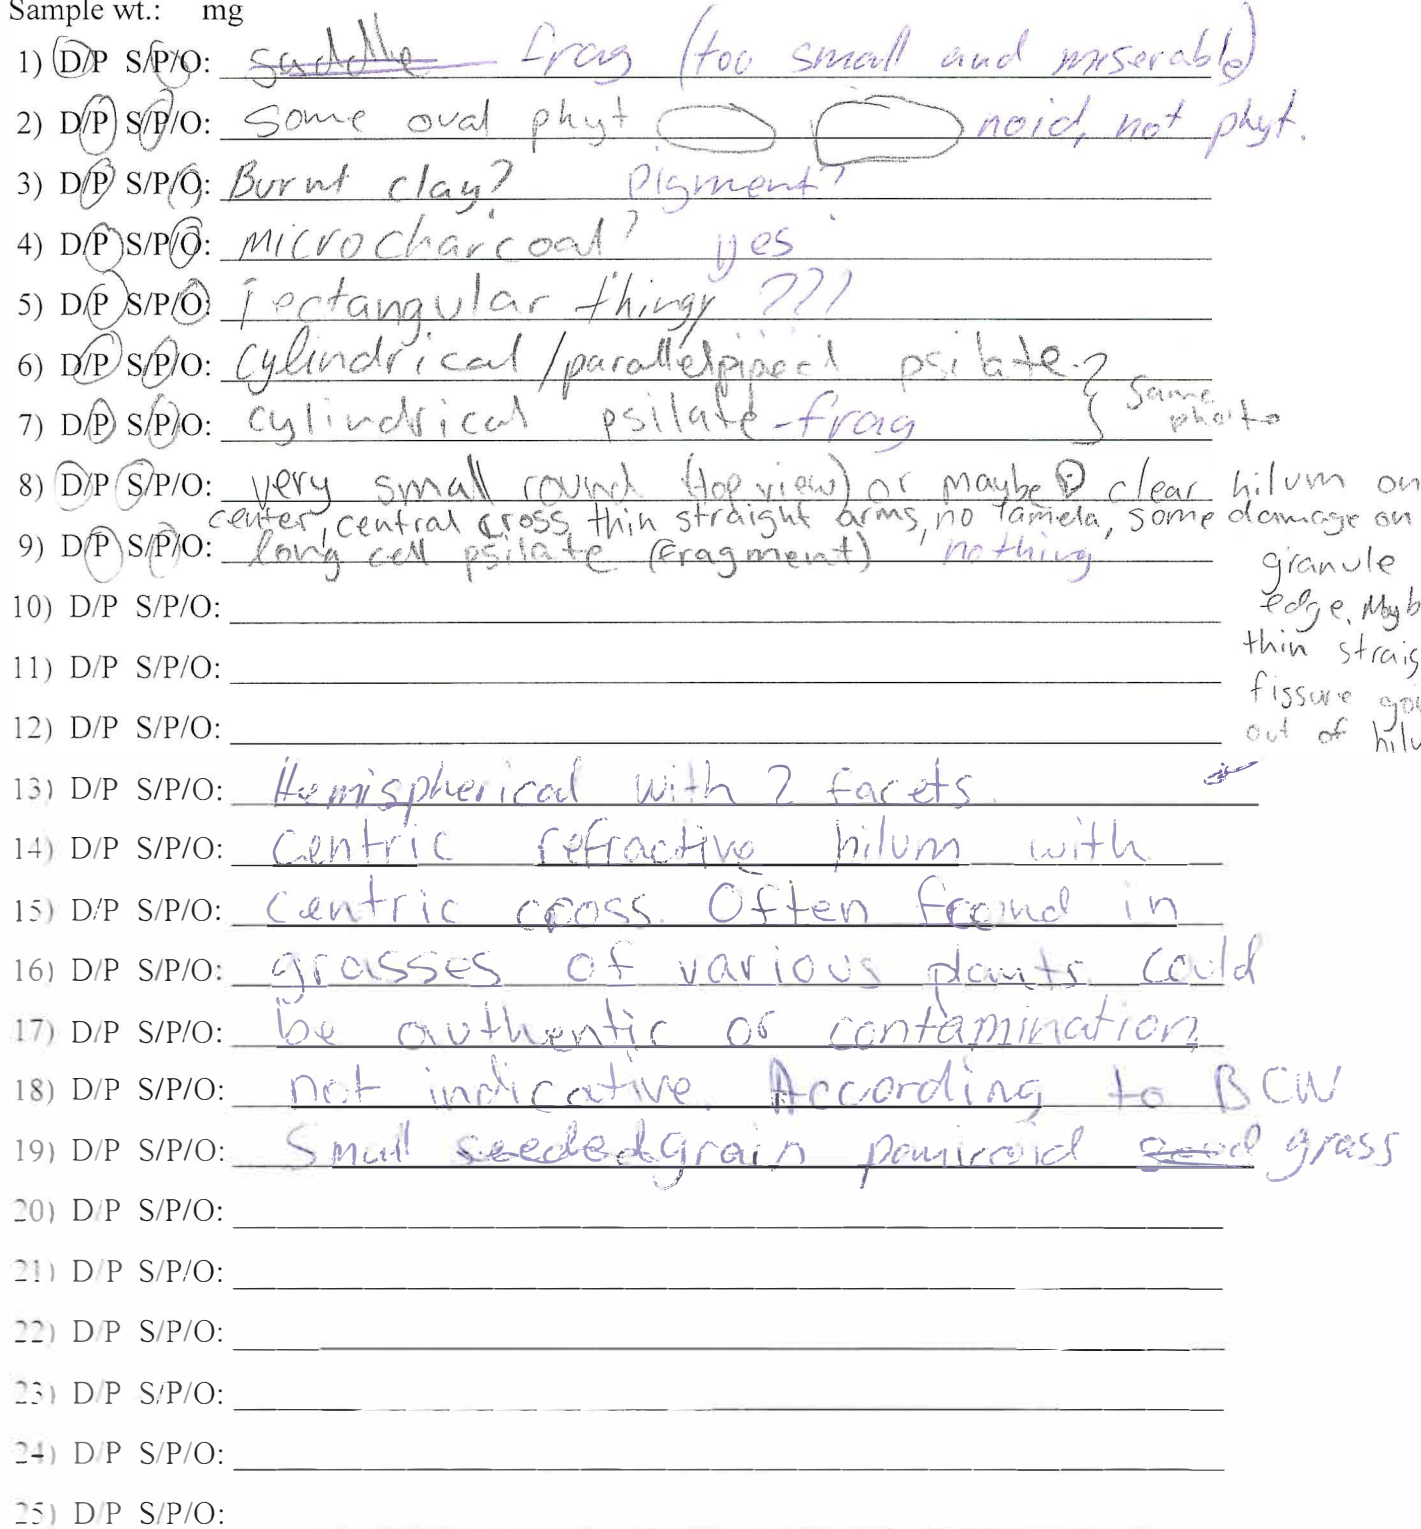 Sample wt.: mg
1) D/P S/P/O: saddle frag (too small and miserable)
2) D/P S/P/O: Some oval phyt noid, not phyt.
3) D/P S/P/O: Burnt clay? Pigment?
4) D/P S/P/O: microcharcoal? yes
5) D/P S/P/O: rectangular thingy ???
6) D/P S/P/O: cylindrical/parallelpiped psilate
7) D/P S/P/O: cylindrical psilate-frag } Same photo
8) D/P S/P/O: very small round (top view) or maybe clear hilum on
center, central cross, thin straight arms, no lamela, some damage on
9) D/P S/P/O: long cell psilate (fragment) nothing
granule
10) D/P S/P/O:
edge. Mayb
11) D/P S/P/O:
thin straig
fissure goi
12) D/P S/P/O:
out of hilu
13) D/P S/P/O: Hemispherical with 2 facets.
14) D/P S/P/O: Centric refractive hilum with
15) D/P S/P/O: Centric cross. Often found in
16) D/P S/P/O: grasses of various plants could
17) D/P S/P/O: be authentic or contamination
18) D/P S/P/O: not indicative. According to BCW
19) D/P S/P/O: Small seeded grain grass
20) D/P S/P/O:
21) D/P S/P/O:
22) D/P S/P/O:
23) D/P S/P/O:
24) D/P S/P/O:
25) D/P S/P/O: